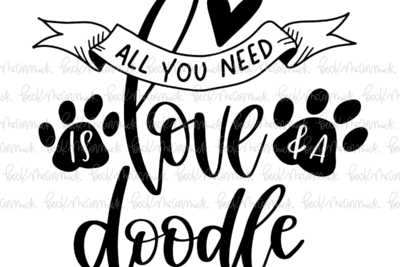 ALL YOU NEED
IS love & A
doodle